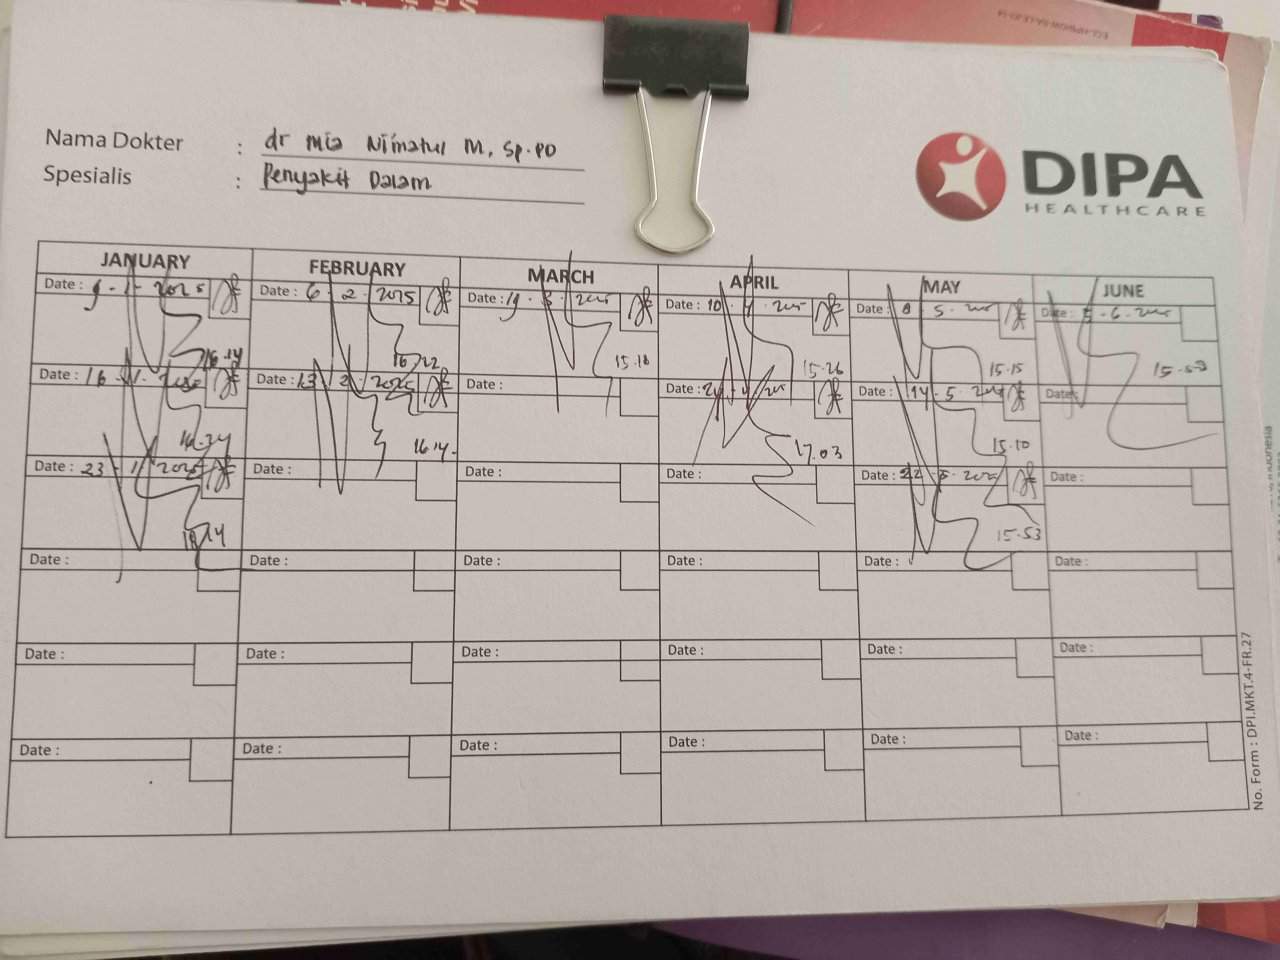 Nama Dokter : dr Mia Ni'matul M, Sp.PD
Spesialis : Penyakit Dalam
DIPA
HEALTHCARE
JANUARY FEBRUARY MARCH APRIL MAY JUNE
Date : 9 - 1 - 2025 Date : 6 - 2 - 2025 Date : 19 - 3 - 2025 Date : 10 - 4 - 2025 Date : 8 - 5 - 2025 Date : 5 - 6 - 2025
16.14 16.22 15.18 15.26 15.15 15.53
Date : 16 - 1 - 2025 Date : 13 - 2 - 2025 Date : Date : 24 - 4 - 2025 Date : 14 - 5 - 2025 Date :
16.24 16.14 17.03 15.10
Date : 23 - 1 - 2025 Date : Date : Date : Date : 22 - 5 - 2025 Date :
15.53
Date : Date : Date : Date : Date : Date :
Date : Date : Date : Date : Date : Date :
Date : Date : Date : Date : Date : Date :
No. Form : DPI.MKT.4-FR.27